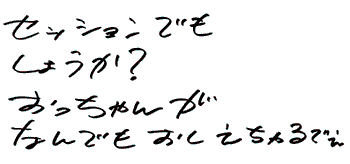 セッションでも
しょうか？
おっちゃんが
なんでもおしえちゃるでぇ